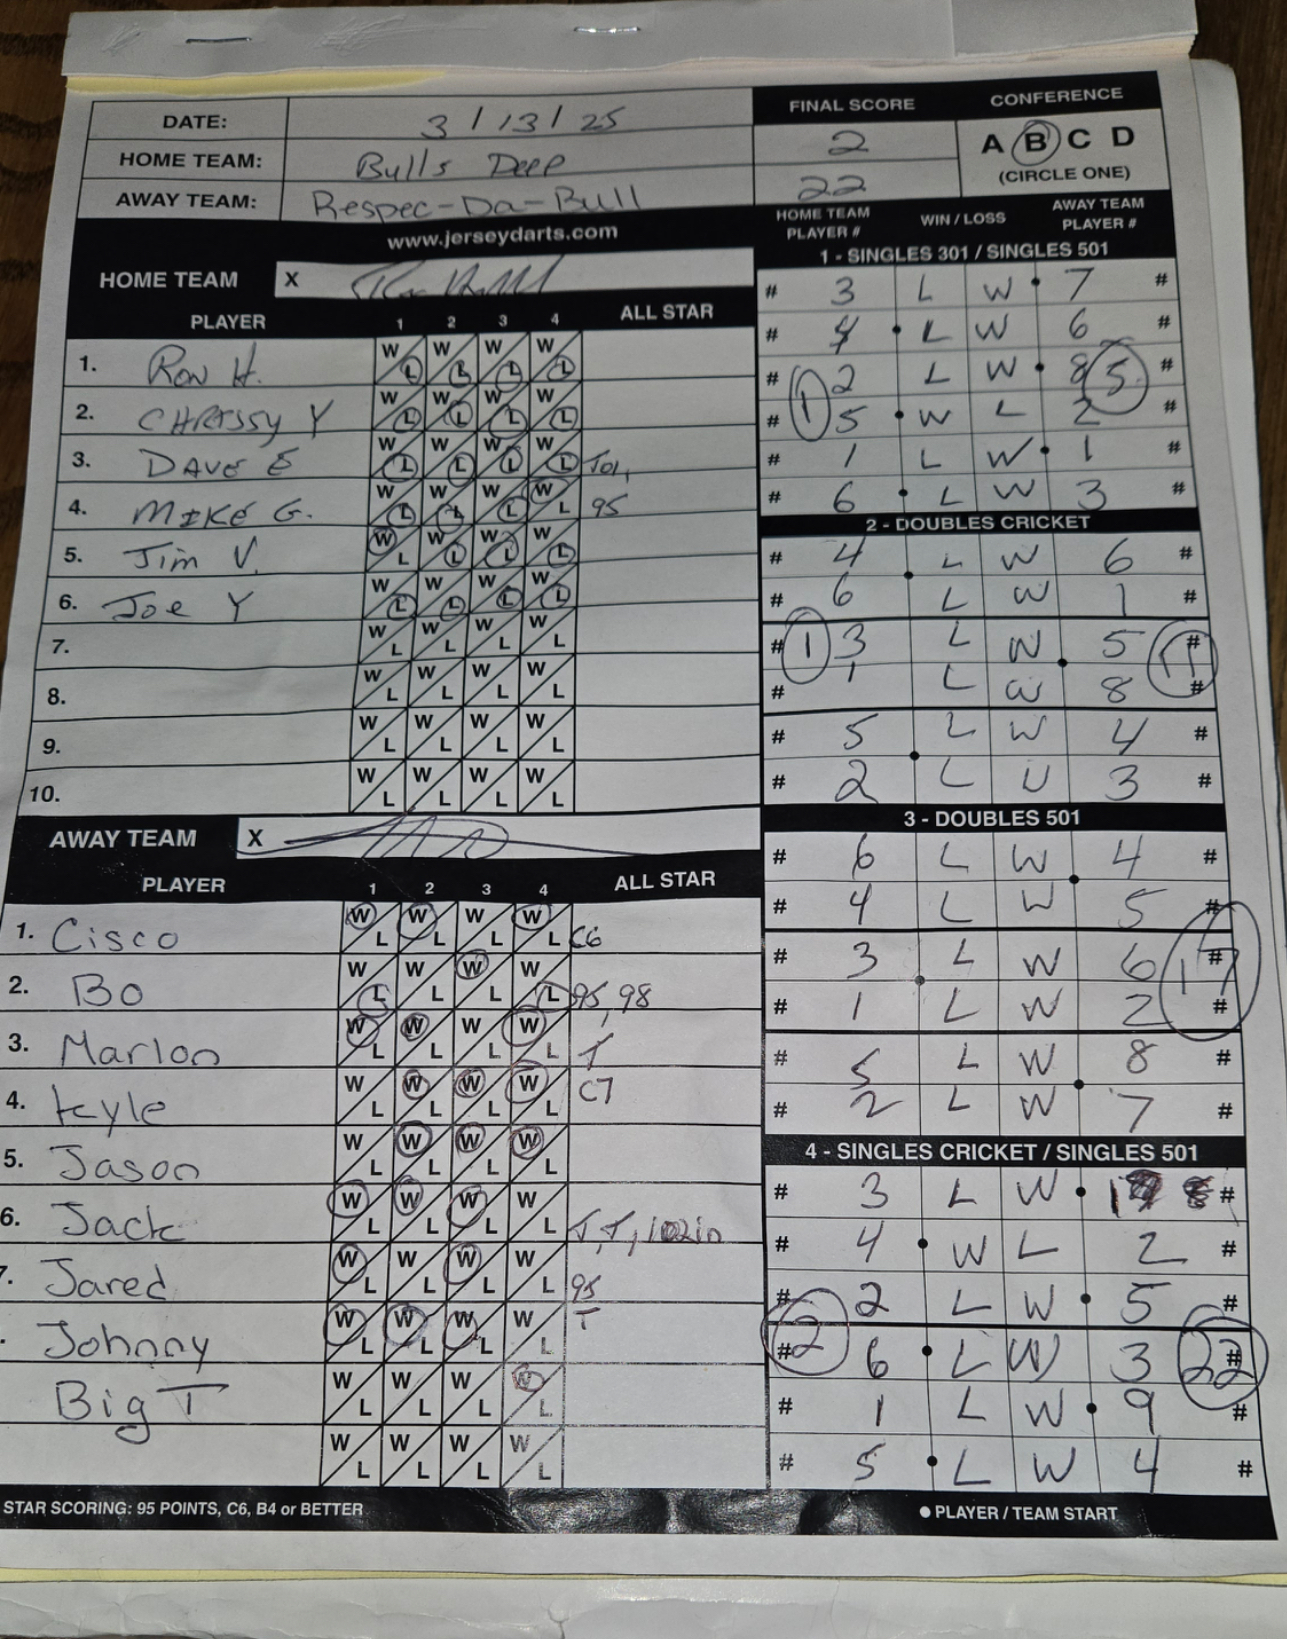 DATE: 3/13/25
HOME TEAM: Bulls Deep
AWAY TEAM: Respec-Da-Bull
FINAL SCORE
2
22
CONFERENCE
A B C D
(CIRCLE ONE)
www.jerseydarts.com
HOME TEAM X
PLAYER 1 2 3 4 ALL STAR
1. Ron H. W L W L W L W L
2. CHRISSY Y W L W L W L W L
3. DAVE E W L W L W L W L T01,
4. MIKE G. W L W L W L W L 95
5. Jim V. W L W L W L W L
6. Joe Y W L W L W L W L
7. W L W L W L W L
8. W L W L W L W L
9. W L W L W L W L
10. W L W L W L W L
AWAY TEAM X
PLAYER 1 2 3 4 ALL STAR
1. Cisco W L W L W L W L C6
2. Bo W L W L W L W L 95, 98
3. Marlon W L W L W L W L T
4. Kyle W L W L W L W L C7
5. Jason W L W L W L W L
6. Jack W L W L W L W L T, T, 102in
7. Jared W L W L W L W L 95
. Johnny W L W L W L W L T
Big T W L W L W L W L
W L W L W L W L
STAR SCORING: 95 POINTS, C6, B4 or BETTER
HOME TEAM PLAYER # WIN / LOSS AWAY TEAM PLAYER #
1 - SINGLES 301 / SINGLES 501
# 3 L W 7 #
# 4 L W 6 #
# 2 L W 8 5 #
# 1 5 W L 2 #
# 1 L W 1 #
# 6 L W 3 #
2 - DOUBLES CRICKET
# 4 L W 6 #
# 6 L W 1 #
# 1 3 L W 5 11 #
# 1 L W 8 #
# 5 L W 4 #
# 2 L W 3 #
3 - DOUBLES 501
# 6 L W 4 #
# 4 L W 5 #
# 3 L W 6 17 #
# 1 L W 2 #
# 5 L W 8 #
# 2 L W 7 #
4 - SINGLES CRICKET / SINGLES 501
# 3 L W 1 #
# 4 W L 2 #
# 2 L W 5 #
# 2 6 L W 3 22 #
# 1 L W 9 #
# 5 L W 4 #
● PLAYER / TEAM START